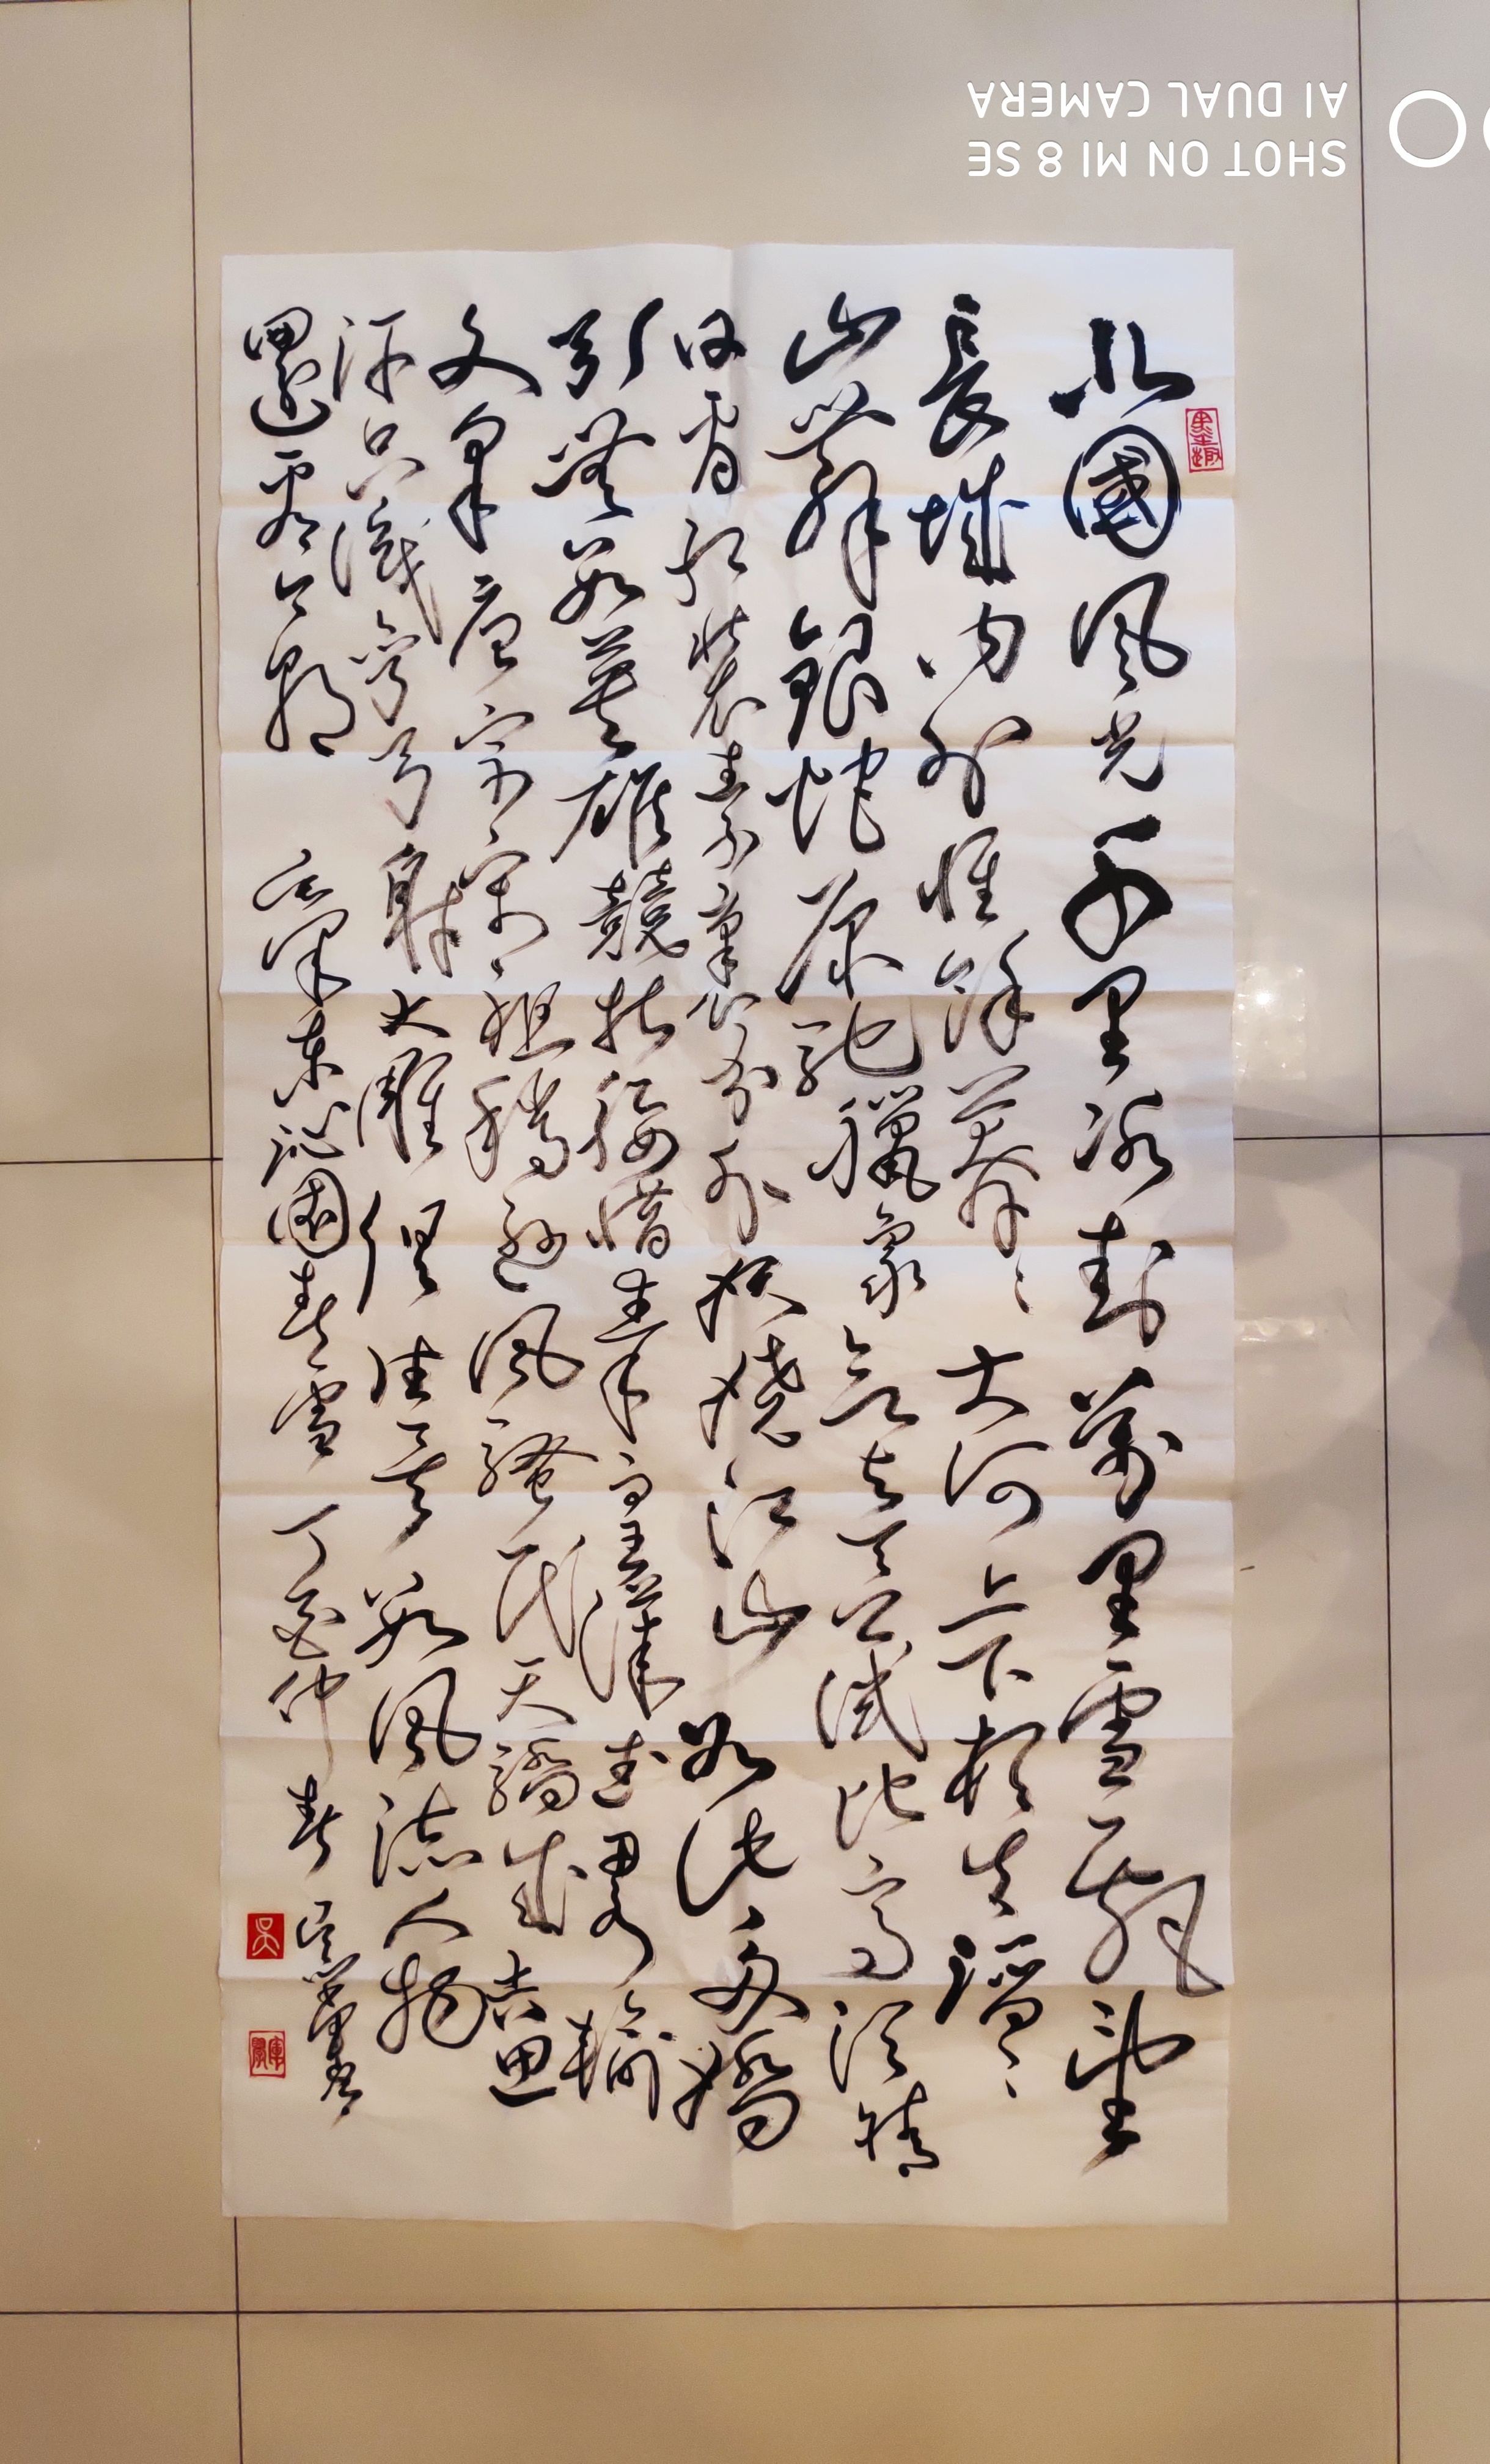 北國風光千里冰封萬里雪飄望
長城内外惟餘莽〻大河上下頓失滔〻
山舞銀蛇原馳臘象欲與天公試比高須晴
日看紅裝素裹分外妖嬈江山如此多嬌
引無數英雄競折腰惜秦皇漢武畧輸
文采唐宗宋祖稍遜風騷一代天驕成吉思
汗只識彎弓射大雕俱往矣數風流人物
還看今朝 毛澤東沁園春雪 丁酉仲春 吳書
墨趣
吳
SHOT ON MI 8 SE
AI DUAL CAMERA